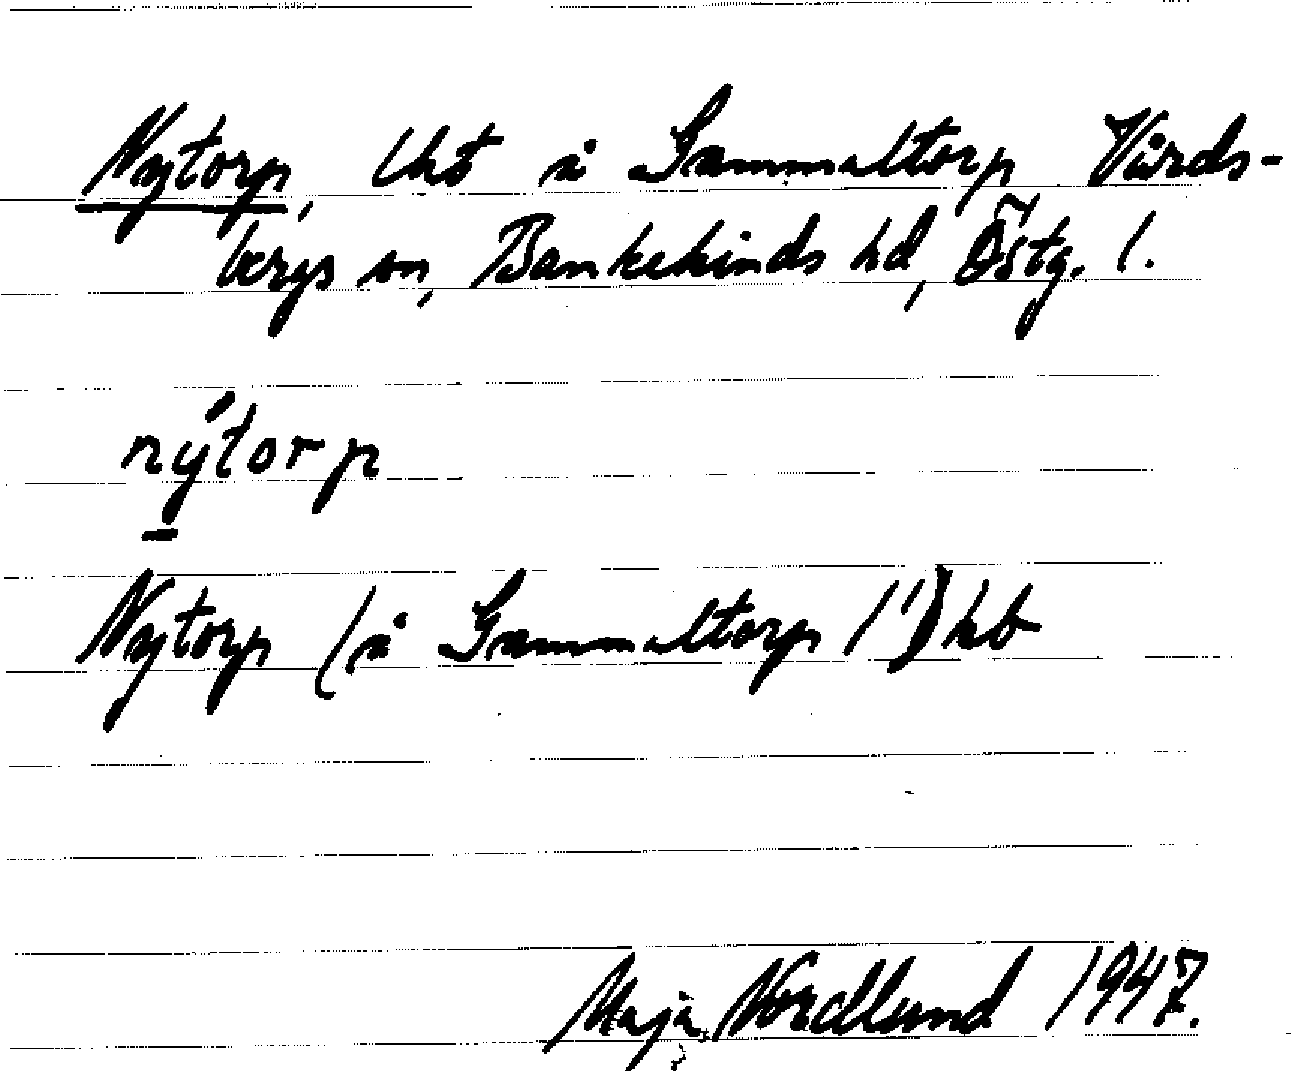 Nytorp, lht å Gammaltorp Vårds-
bergs sn, Bankekinds hd, Östg. l.
nýtorp
Nytorp (å Gammaltorp 1¹) hb
Maja Nordlund 1947.